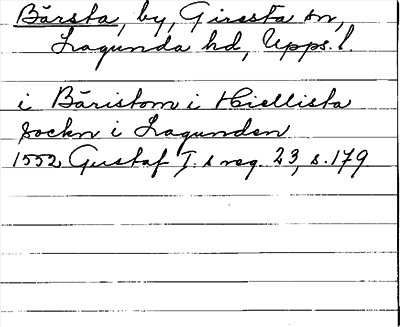 Bärsta, by, Giresta sn,
Lagunda hd, Upps. l.
i Bäristom i Hiellista
sockn i Lagunden
1552 Gustaf I:s reg. 23, s. 179